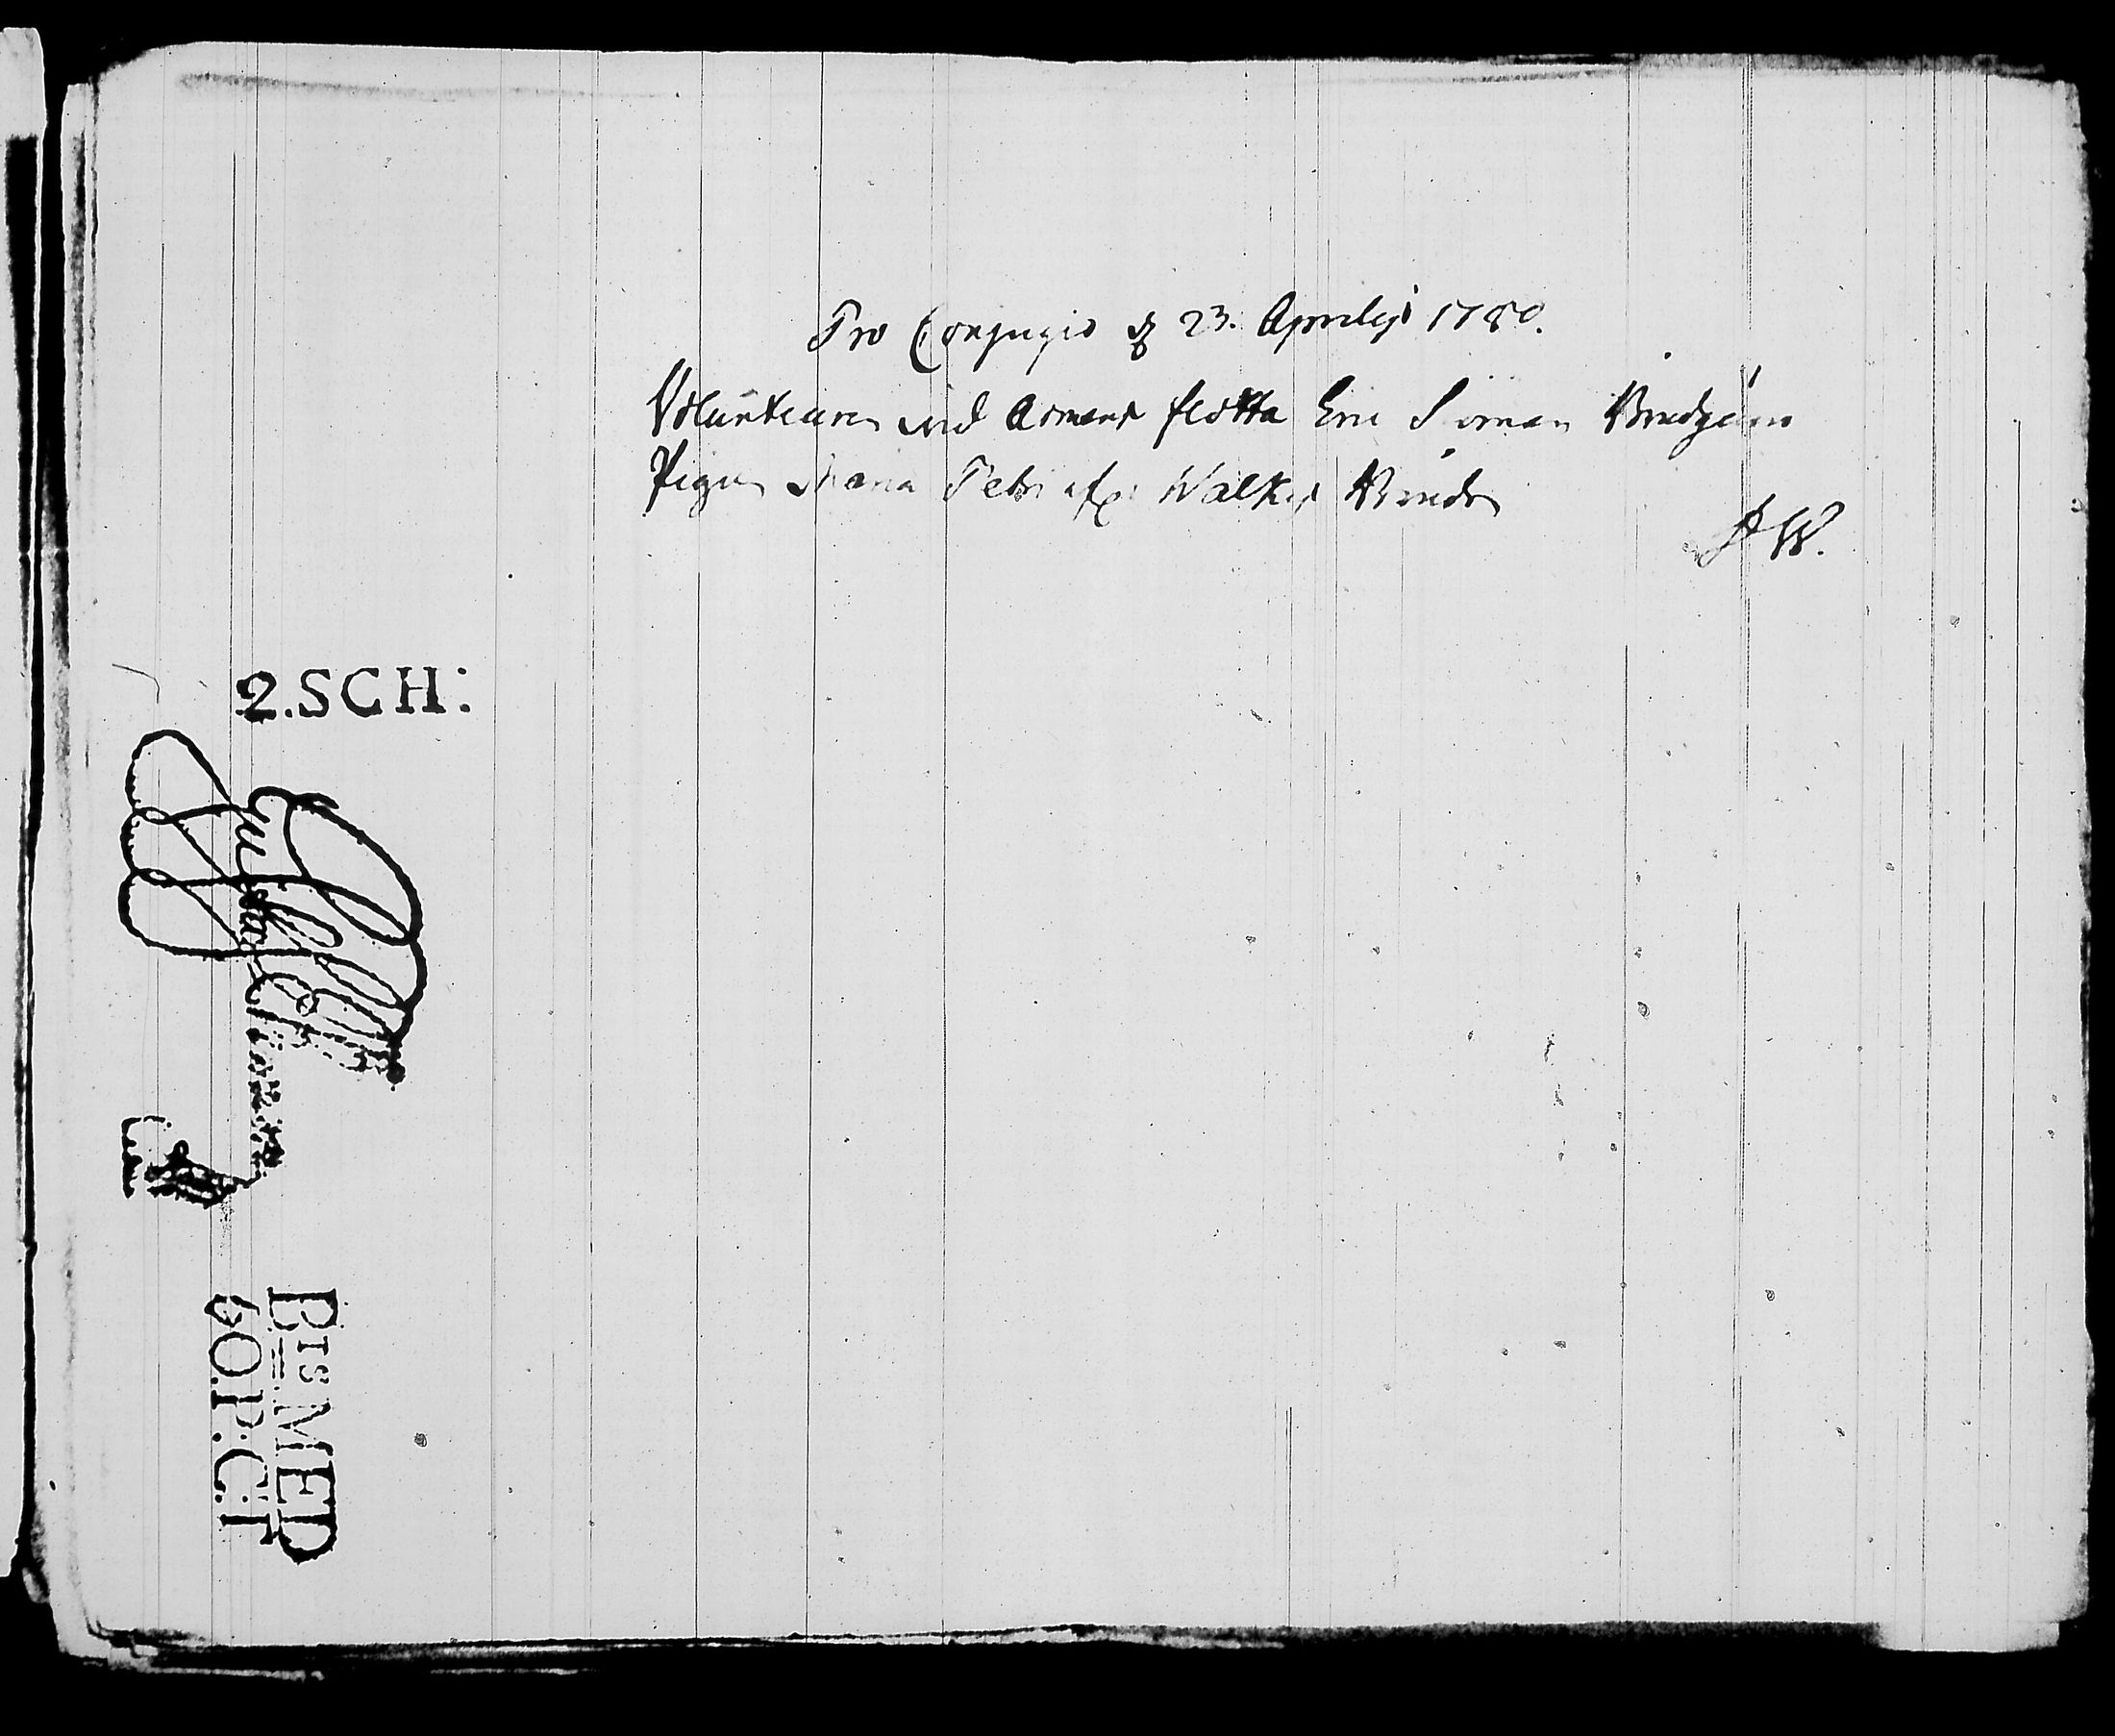 Pro Conjugio d. 23. Aprilis 1780.
Volunteuren wid Armens flotta Eric Soman Brudgum
Pigan Maria Petri Walkes Brud
2.SCH:
BTS=MED
60.P:C:T